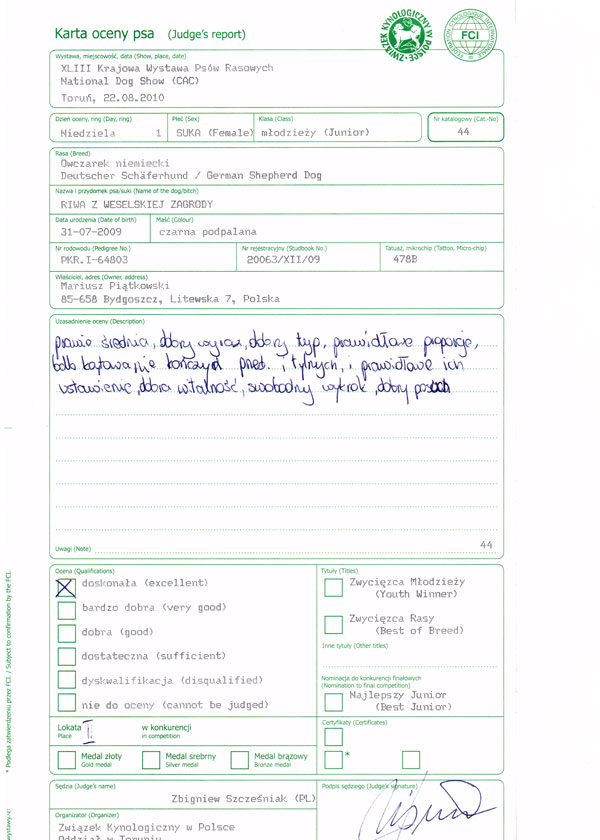 Karta oceny psa (Judge's report)
ZWIĄZEK KYNOLOGICZNY W POLSCE
FEDERATION CYNOLOGIQUE INTERNATIONALE
FCI
Wystawa, miejscowość, data (Show, place, date)
XLIII Krajowa Wystawa Psów Rasowych
National Dog Show (CAC)
Toruń, 22.08.2010
Dzień oceny, ring (Day, ring) Płeć (Sex) Klasa (Class) Nr katalogowy (Cat.-No)
Niedziela 1 SUKA (Female) młodzieży (Junior) 44
Rasa (Breed)
Owczarek niemiecki
Deutscher Schäferhund / German Shepherd Dog
Nazwa i przydomek psa/suki (Name of the dog/bitch)
RIWA Z WESELSKIEJ ZAGRODY
Data urodzenia (Date of birth) Maść (Colour)
31-07-2009 czarna podpalana
Nr rodowodu (Pedigree No.) Nr rejestracyjny (Studbook No.) Tatuaż, mikrochip (Tattoo, Micro-chip)
PKR.I-64803 20063/XII/09 478B
Właściciel, adres (Owner, address)
Mariusz Piątkowski
85-658 Bydgoszcz, Litewska 7, Polska
Uzasadnienie oceny (Description)
prawie średnia, dobry wyraz, dobry typ, prawidłowe proporcje,
kątowanie kończyn przed. i tylnych, i prawidłowe ich
ustawienie, dobra witalność, swobodny wykrok, dobry
Uwagi (Note) 44
Ocena (Qualifications) Tytuły (Titles)
doskonała (excellent) Zwycięzca Młodzieży
(Youth Winner)
bardzo dobra (very good) Zwycięzca Rasy
dobra (good) (Best of Breed)
Inne tytuły (Other titles)
dostateczna (sufficient)
dyskwalifikacja (disqualified) Nominacja do konkurencji finałowych
(Nomination to final competition)
nie do oceny (cannot be judged) Najlepszy Junior
(Best Junior)
Lokata II w konkurencji Certyfikaty (Certificates)
Place in competition
Medal złoty Medal srebrny Medal brązowy *
Gold medal Silver medal Bronze medal
Sędzia (Judge's name) Podpis sędziego (Judge's signature)
Zbigniew Szcześniak (PL)
Organizator (Organizer)
Związek Kynologiczny w Polsce
Oddział w Toruniu
* Podlega zatwierdzeniu przez FCI. / Subject to confirmation by the FCI.